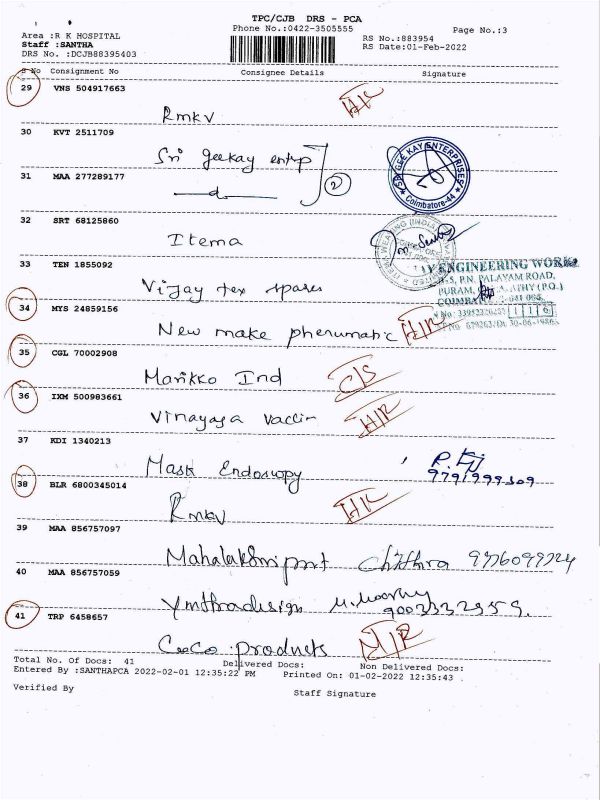 TPC/CJB DRS - PCA
Phone No.:0422-3505555
Page No.:3
Area :R K HOSPITAL
RS No.:883954
Staff :SANTHA
RS Date:01-Feb-2022
DRS No. :DCJB88395403
S No Consignment No Consignee Details Signature
29 VNS 504917663 H/R
Rmkv
30 KVT 2511709
Sri geekay entrp
SRI GEE KAY ENTERPRISES
Coimbatore-44
31 MAA 277289177
2
32 SRT 68125860
Itema
33 TEN 1855092
ENGINEERING WORKS
P.N. PALAYAM ROAD,
Vijay tex spares
34 MYS 24859156
New make phenumatic H/R
35 CGL 70002908
Marikko Ind C/S
36 IXM 500983661
Vinayaga Vaccin H/R
37 KDI 1340213
Mask Endoscopy
9791999309
38 BLR 6800345014
Rmkv H/R
39 MAA 856757097
Mahalakshmi Chithra
40 MAA 856757059
Ymthradesign M. Moorthy
9003332959.
41 TRP 6458657
CeeCo products H/R
Total No. Of Docs: 41 Delivered Docs: Non Delivered Docs:
Entered By :SANTHAPCA 2022-02-01 12:35:22 PM Printed On: 01-02-2022 12:35:43
Verified By Staff Signature